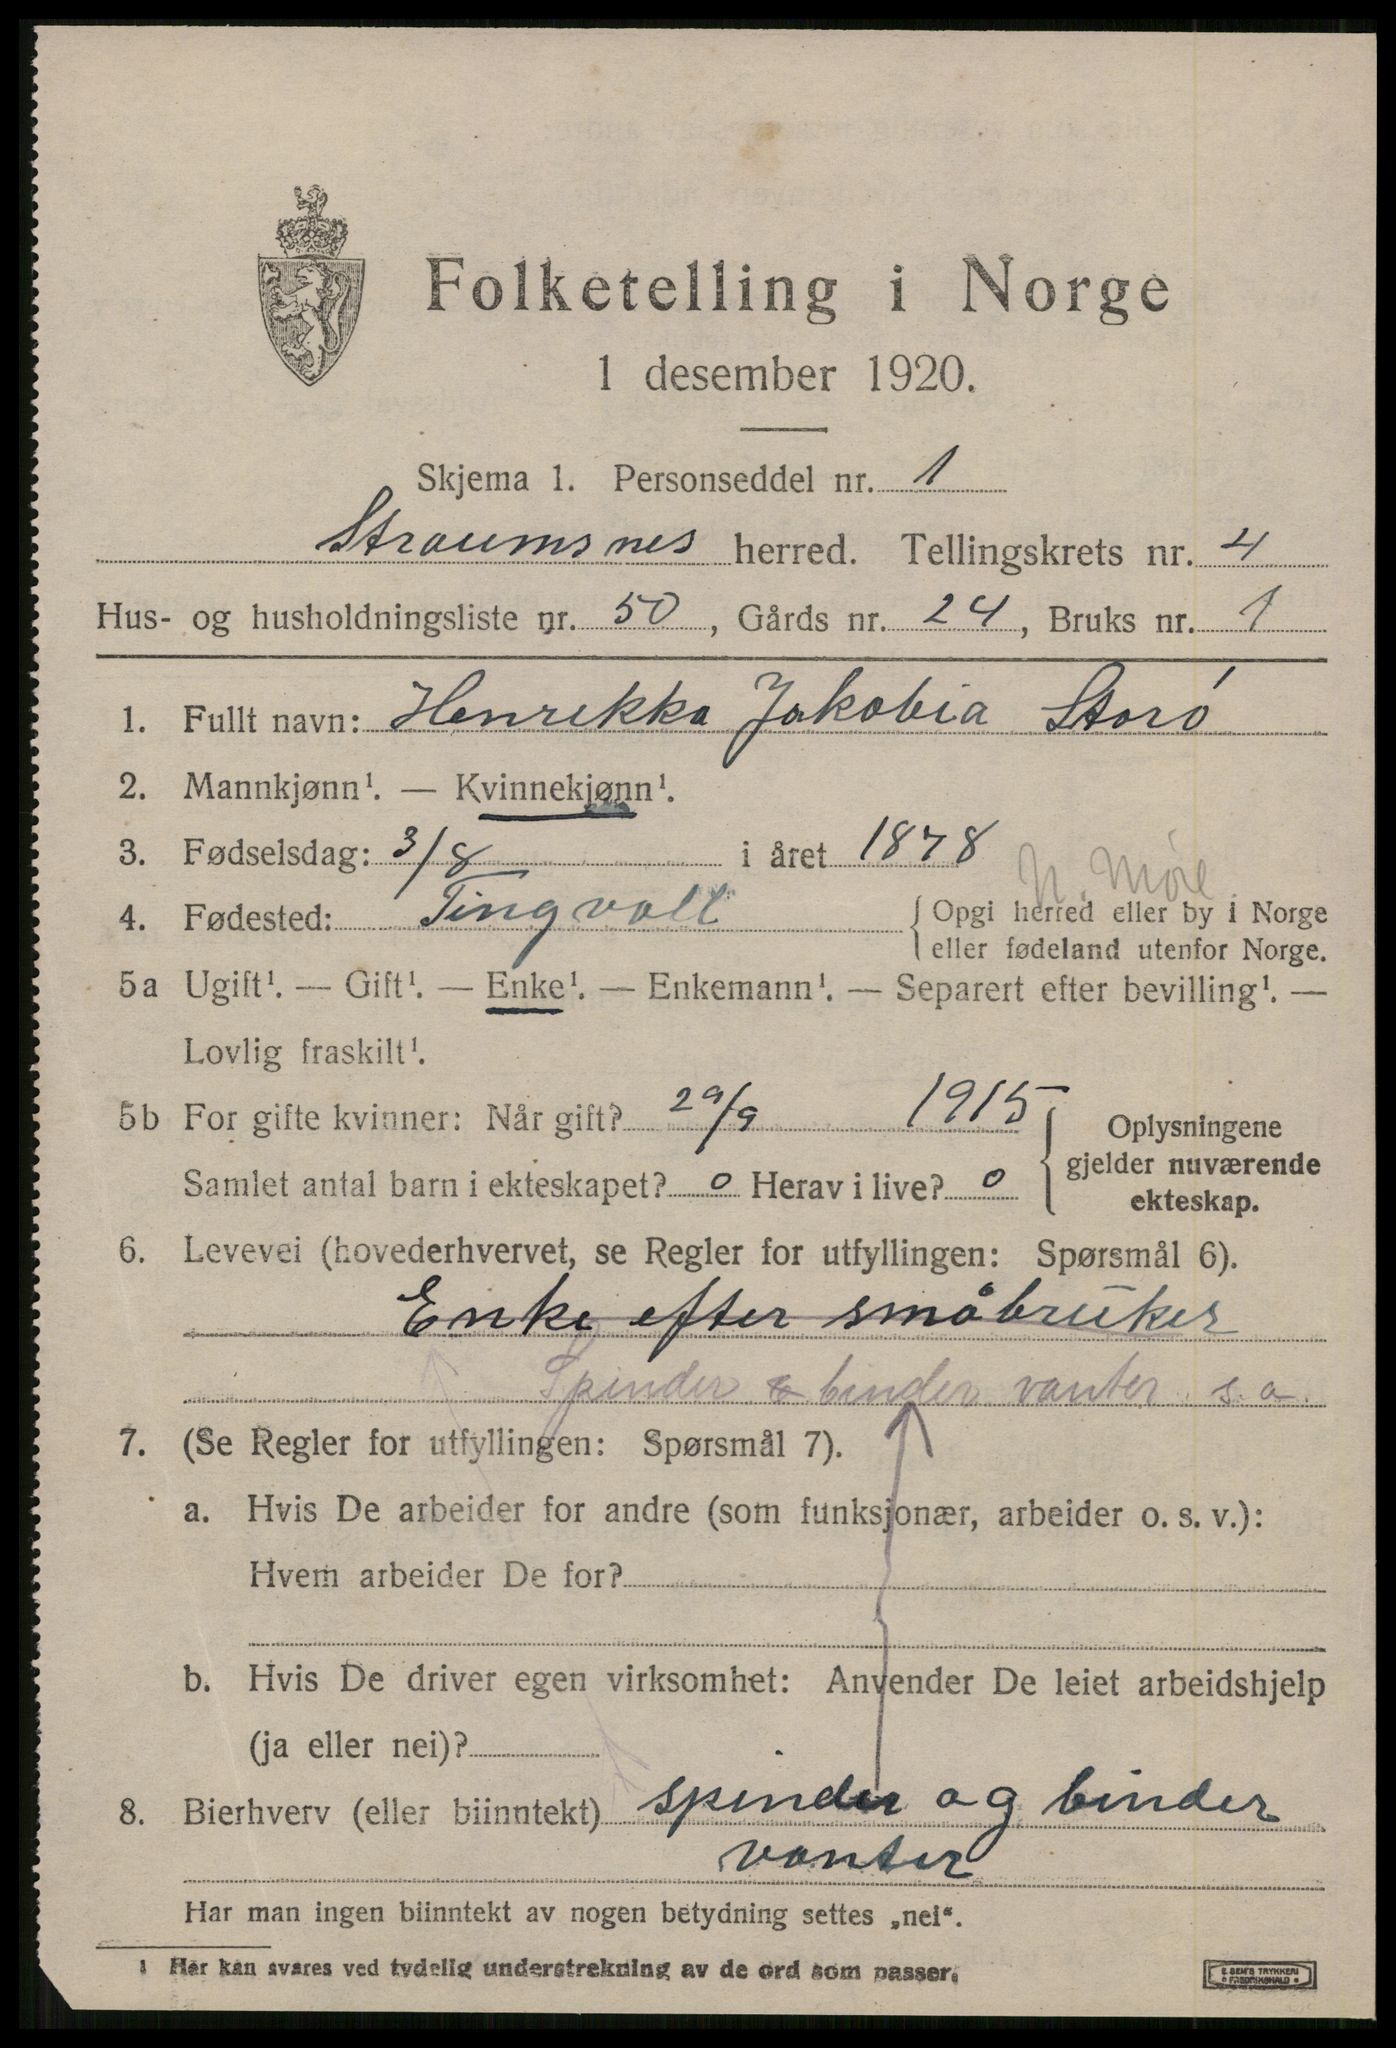 Folketelling i Norge
1 desember 1920.
Skjema 1. Personseddel nr. 1
Straumsnes herred. Tellingskrets nr. 4
Hus- og husholdningsliste nr. 50, Gårds nr. 24, Bruks nr. 1
1. Fullt navn: Henrikka Jakobia Storø
2. Mannkjønn¹. — Kvinnekjønn¹.
3. Fødselsdag: 3/8 i året 1878
N. Møre
4. Fødested: Tingvoll { Opgi herred eller by i Norge
eller fødeland utenfor Norge.
5a Ugift¹. — Gift¹. — Enke¹. — Enkemann¹. — Separert efter bevilling¹. —
Lovlig fraskilt¹.
5b For gifte kvinner: Når gift? 29/9 1915
Samlet antal barn i ekteskapet? 0 Herav i live? 0
Oplysningene
gjelder nuværende
ekteskap.
6. Levevei (hovederhvervet, se Regler for utfyllingen: Spørsmål 6).
Enke efter småbruker
Spinder & binder vanter s. a.
7. (Se Regler for utfyllingen: Spørsmål 7).
a. Hvis De arbeider for andre (som funksjonær, arbeider o. s. v.):
Hvem arbeider De for?
b. Hvis De driver egen virksomhet: Anvender De leiet arbeidshjelp
(ja eller nei)?
8. Bierhverv (eller biinntekt) spinder og binder
vanter
Har man ingen biinntekt av nogen betydning settes „nei“.
1 Her kan svares ved tydelig understrekning av de ord som passer.
E. SEM'S TRYKKERI
FREDRIKSHALD